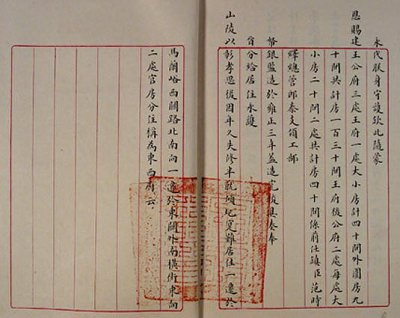 永代居守護欽此隨蒙
恩賜建王公府三處王府一處大小房計四十間外圍房九
十間共計房一百三十間王府後公府二處每處大
小房二十間二處共計房四十間係前任鎮臣范時
繹總管郎泰支領工部
帑銀蓋造於雍正三年蓋造完竣具奏奉
旨分給居住永護
山陵以彰孝思後因年久失修半就傾圮實難居住一邊於
馬蘭峪西關路北南向一邊於東關外南橫街東向
二處官房分住稱為東西府云